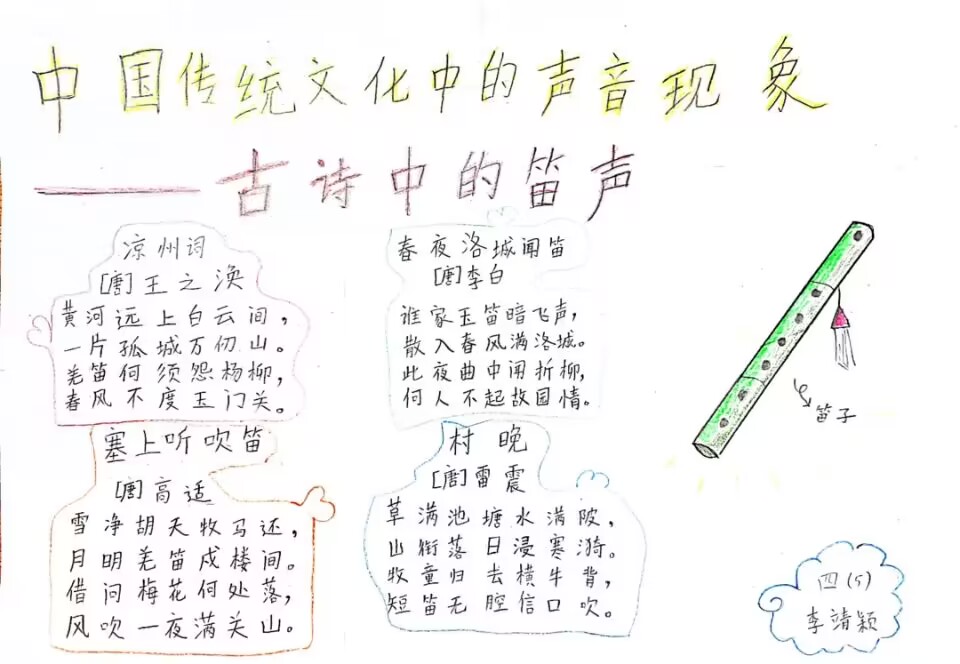 中国传统文化中的声音现象
——古诗中的笛声
凉州词
[唐]王之涣
黄河远上白云间，
一片孤城万仞山。
羌笛何须怨杨柳，
春风不度玉门关。
春夜洛城闻笛
[唐]李白
谁家玉笛暗飞声，
散入春风满洛城。
此夜曲中闻折柳，
何人不起故园情。
塞上听吹笛
[唐]高适
雪净胡天牧马还，
月明羌笛戍楼间。
借问梅花何处落，
风吹一夜满关山。
村晚
[唐]雷震
草满池塘水满陂，
山衔落日浸寒漪。
牧童归去横牛背，
短笛无腔信口吹。
笛子
四(5)
李靖颖